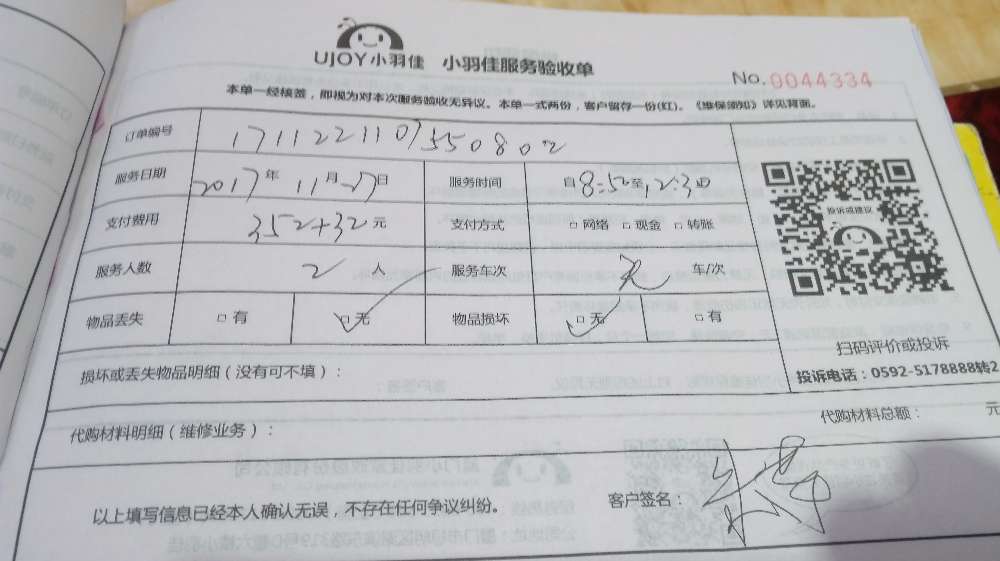 UJOY小羽佳 小羽佳服务验收单
No.0044334
本单一经核签，即视为对本次服务验收无异议。本单一式两份，客户留存一份(红)。《维保须知》详见背面。
订单编号 1711221107550802
服务日期 2017年11月27日 服务时间 自8:50至12:30
投诉或建议
支付费用 352+32元 支付方式 □网络 □现金 □转账
服务人数 2人 服务车次 无 车/次
物品丢失 □有 ☑无 物品损坏 ☑无 □有
扫码评价或投诉
损坏或丢失物品明细（没有可不填）：
投诉电话：0592-5178888转2
代购材料明细（维修业务）：
代购材料总额： 元
以上填写信息已经本人确认无误，不存在任何争议纠纷。
客户签名：